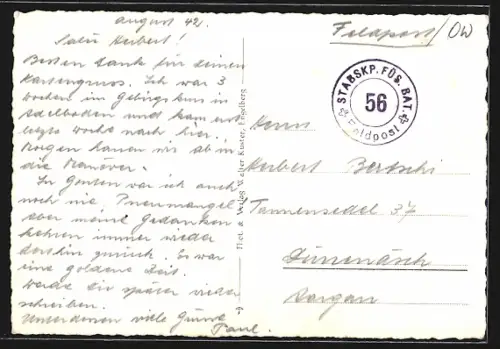 August 42.
Salü Herbert!
Besten Dank für deinen
Kartengruss. Ich war 3
Wochen im Gebirgskurs in
Adelboden und kam erst
letzte Woche nach hier.
Morgen hauen wir ab in
die Manöver.
In Genten war ich auch
noch nie. Pneumangel
aber meine Gedanken
kehren immer wieder
dorthin zurück. Es war
eine goldene Zeit.
Werde dir später wieder
schreiben.
Unterdessen viele Grüsse
Paul.
Phot. & Verlag Walter Kuster, Engelberg
Feldpost/OW
STABSKP. FÜS. BAT.
56
Feldpost
Herrn
Herbert Bertschi
Tannensedel 37
Dürrenäsch
Aargau